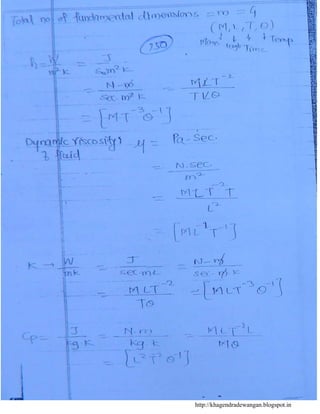 Total no of fundamental dimensions = m = 4
(M, L, T, θ)
Mass Length Time Temp
250
h = W/m²K = J/Sec m² K
= N-m/Sec. m² K = MLT⁻²/TLθ
= [MT⁻³θ⁻¹]
Dynamic viscosity of fluid μ = Pa-Sec.
= N.sec./m²
= MLT⁻²T/L²
= [ML⁻¹T⁻¹]
K → W/mk = J/sec-mk = N-m/sec.m.k
= MLT⁻²/Tθ = [MLT⁻³θ⁻¹]
Cp = J/kg.K = N.m/kg k = MLT⁻²L/Mθ
= [L²T⁻²θ⁻¹]
http://khagendradewangan.blogspot.in